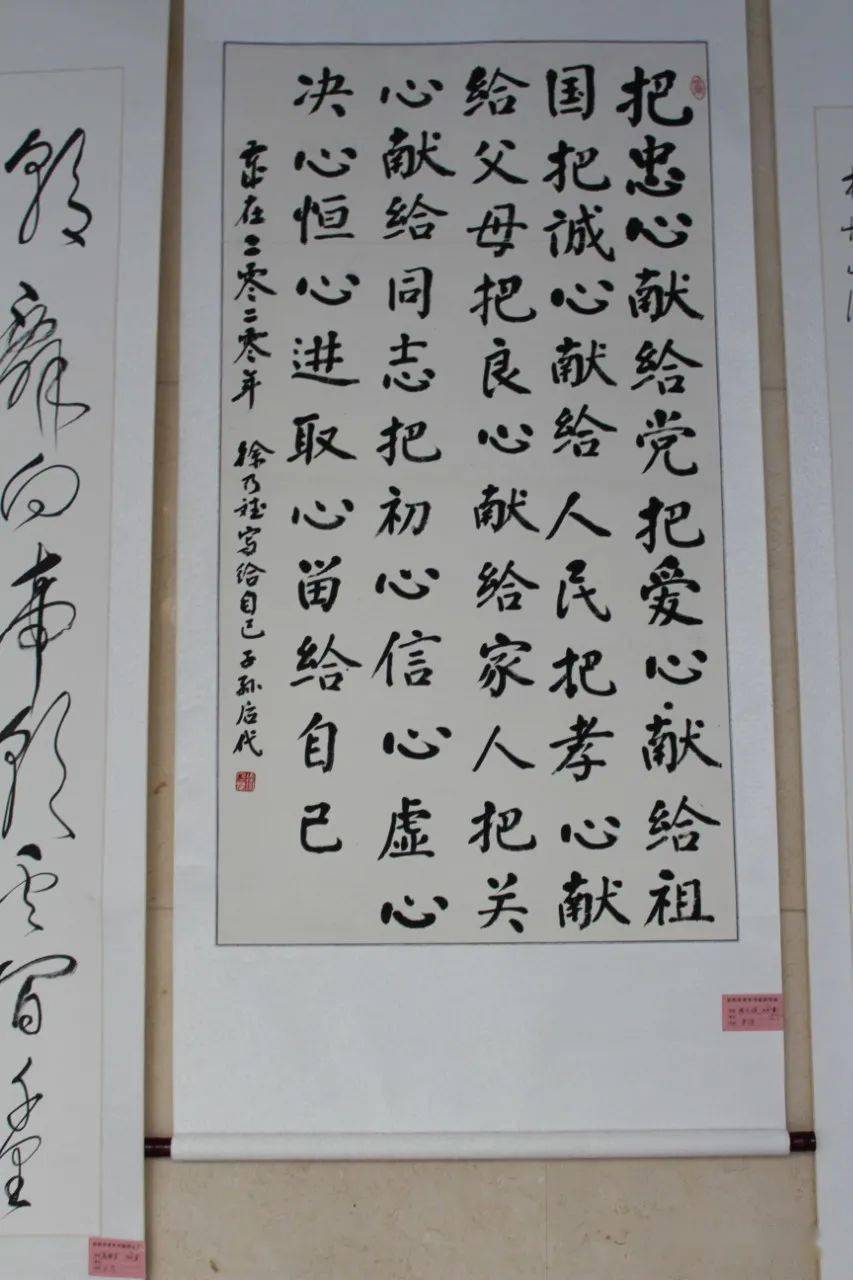 把忠心献给党把爱心献给祖
国把诚心献给人民把孝心献
给父母把良心献给家人把关
心献给同志把初心信心虚心
决心恒心进取心留给自己
在二零二零年 徐乃写给自己子孙后代
朝辞白帝彩云间千里